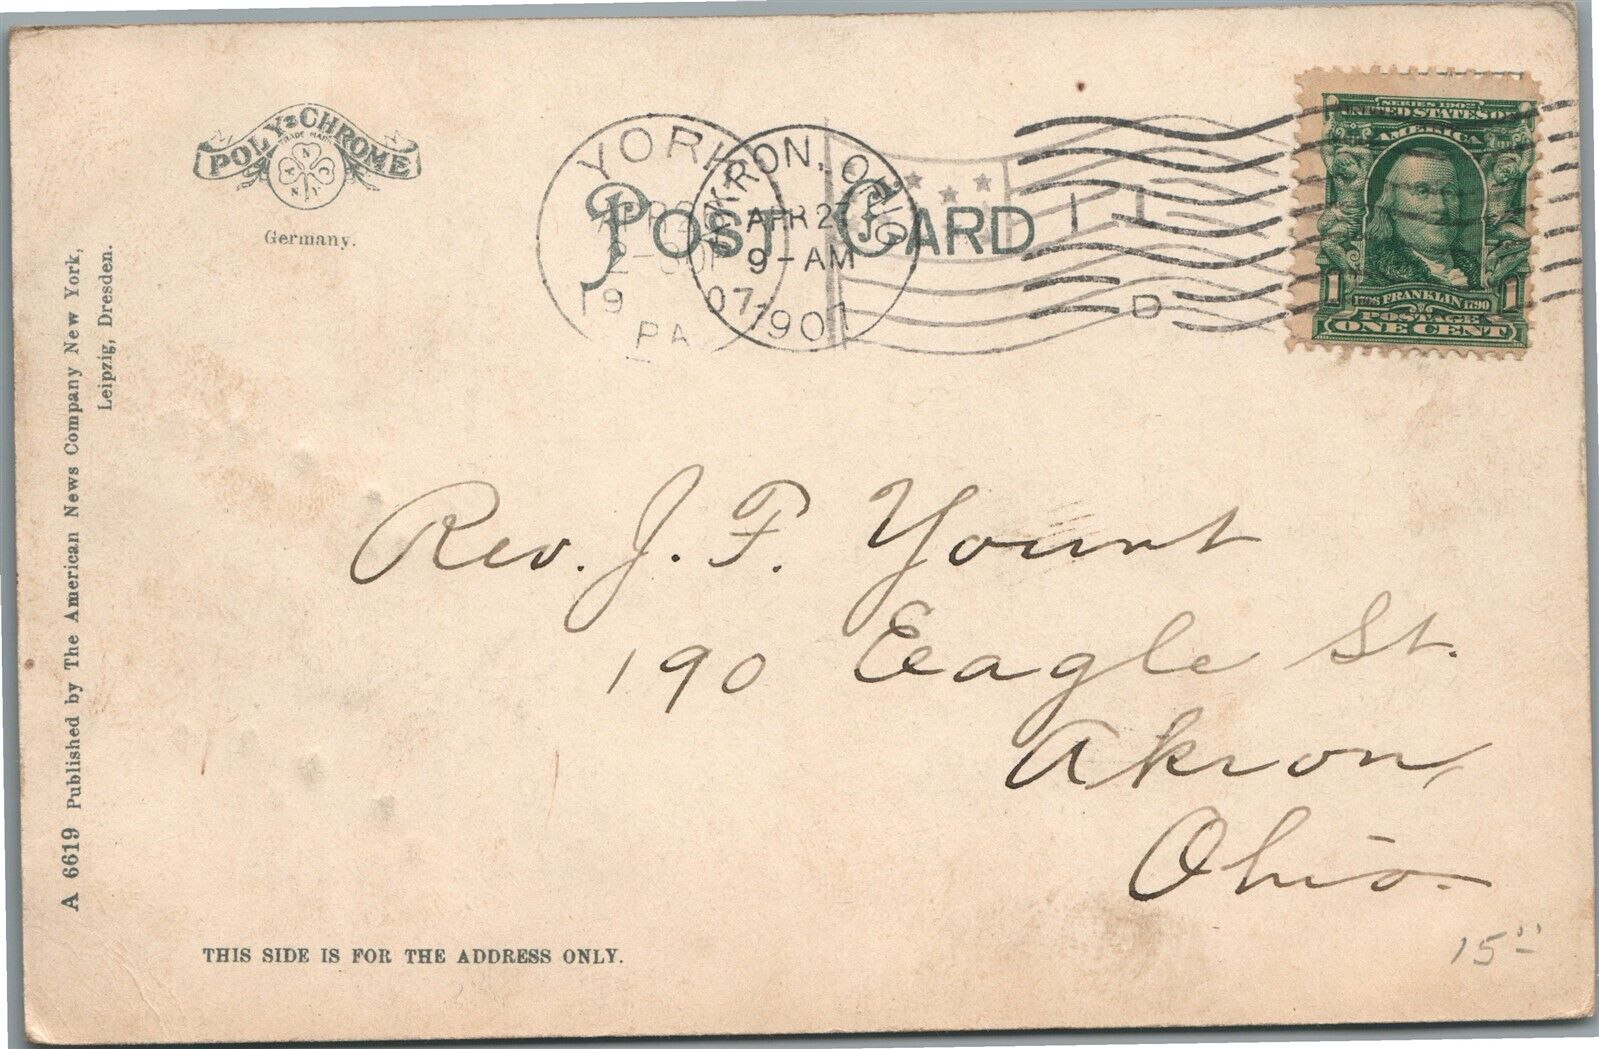 POLY-CHROME
TRADE MARK
Germany.
POST CARD
YORK
APR 2
2-30P
1907
PA
AKRON, OHIO
APR 25
9-AM
1907
D
SERIES 1902
UNITED STATES OF
AMERICA
1 1706 FRANKLIN 1790 1
POSTAGE
ONE CENT
A 6619 Published by The American News Company New York,
Leipzig, Dresden.
Rev. J. F. Yount
190 Eagle St.
Akron,
Ohio.
15"
THIS SIDE IS FOR THE ADDRESS ONLY.